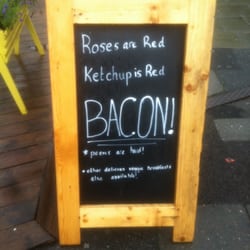 Roses are Red
Ketchup is Red
BACON!
* poems are hard!
* other delicious veggie breakfasts
also available!